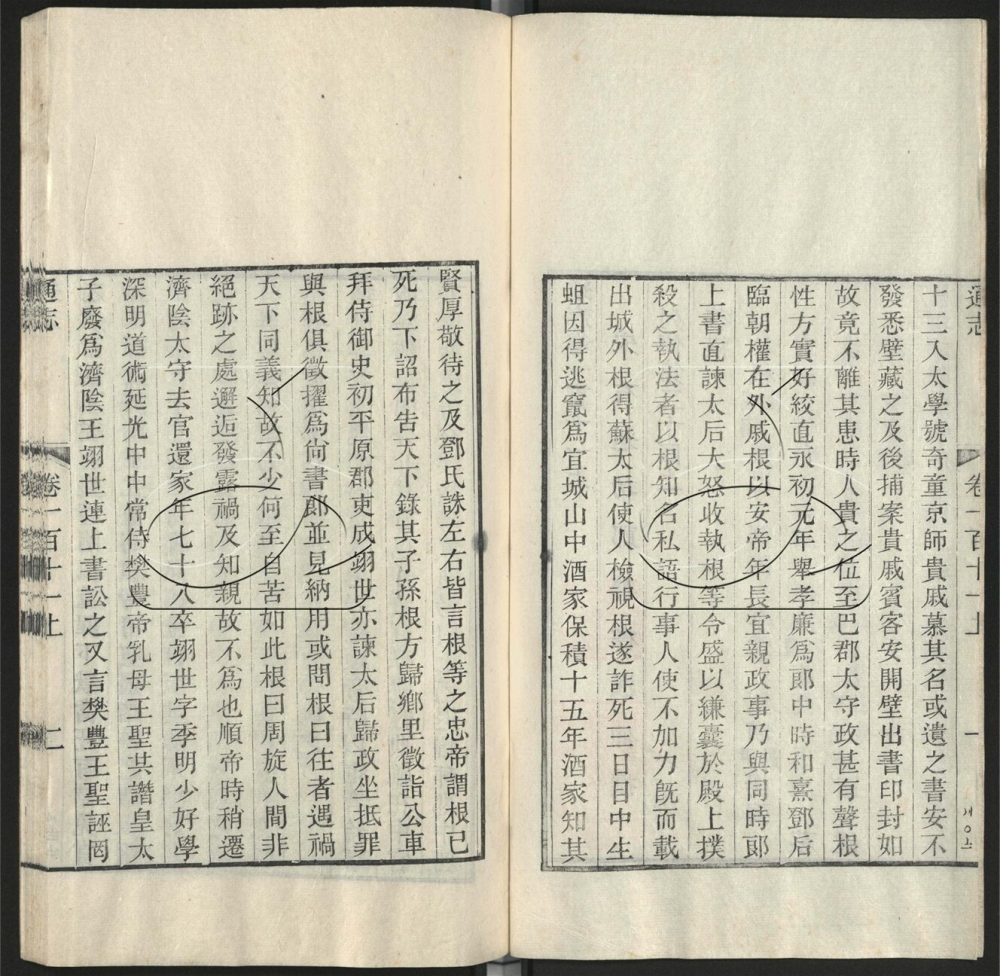 通志
卷一百十一上
一
十三入太學號奇童京師貴戚慕其名或遺之書安不
發悉壁藏之及後捕案貴戚賓客安開壁出書印封如
故竟不離其患時人貴之位至巴郡太守政甚有聲根
性方實好絞直永初元年舉孝廉爲郎中時和熹鄧后
臨朝權在外戚根以安帝年長宜親政事乃與同時郎
上書直諫太后大怒收執根等令盛以縑囊於殿上撲
殺之執法者以根知名私語行事人使不加力旣而載
出城外根得蘇太后使人檢視根遂詐死三日目中生
蛆因得逃竄爲宜城山中酒家保積十五年酒家知其
賢厚敬待之及鄧氏誅左右皆言根等之忠帝謂根已
死乃下詔布告天下錄其子孫根方歸鄉里徵詣公車
拜侍御史初平原郡吏成翊世亦諫太后歸政坐抵罪
與根俱徵擢爲尙書郎並見納用或問根曰往者遇禍
天下同義知故不少何至自苦如此根曰周旋人間非
絕跡之處邂逅發露禍及知親故不爲也順帝時稍遷
濟陰太守去官還家年七十八卒翊世字季明少好學
深明道術延光中中常侍樊豐帝乳母王聖共譖皇太
子廢爲濟陰王翊世連上書訟之又言樊豐王聖誣罔
通志
卷一百十一上
二